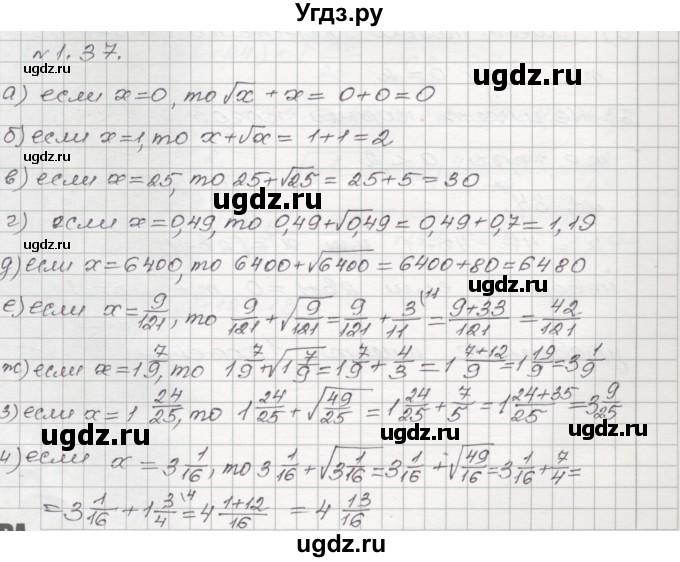 Угдз.ру
№ 1.37.
ugdz.ru ugdz.ru ugdz.ru
а) если x=0, то √x + x = 0+0=0
б) если x=1, то x+√x = 1+1=2
ugdz.ru
в) если x=25, то 25+√25 = 25+5=30
ugdz.ru
г) если x=0,49, то 0,49+√0,49 = 0,49+0,7=1,19
ugdz.ru ugdz.ru
д) если x=6400, то 6400+√6400=6400+80=6480
е) если x=9/121, то 9/121+√9/121=9/121+3/11\11=9+33/121=42/121
ugdz.ru ugdz.ru
ж) если x=1 7/9, то 1 7/9+√1 7/9=1 7/9+4/3=1 7+12/9=1 19/9=3 1/9
з) если x=1 24/25, то 1 24/25+√49/25=1 24/25+7/5=1 24+35/25=3 9/25
ugdz.ru ugdz.ru
и) если x=3 1/16, то 3 1/16+√3 1/16=3 1/16+√49/16=3 1/16+7/4=
ugdz.ru ugdz.ru
=3 1/16+1 3/4\4=4 1+12/16=4 13/16
ugdz.ru